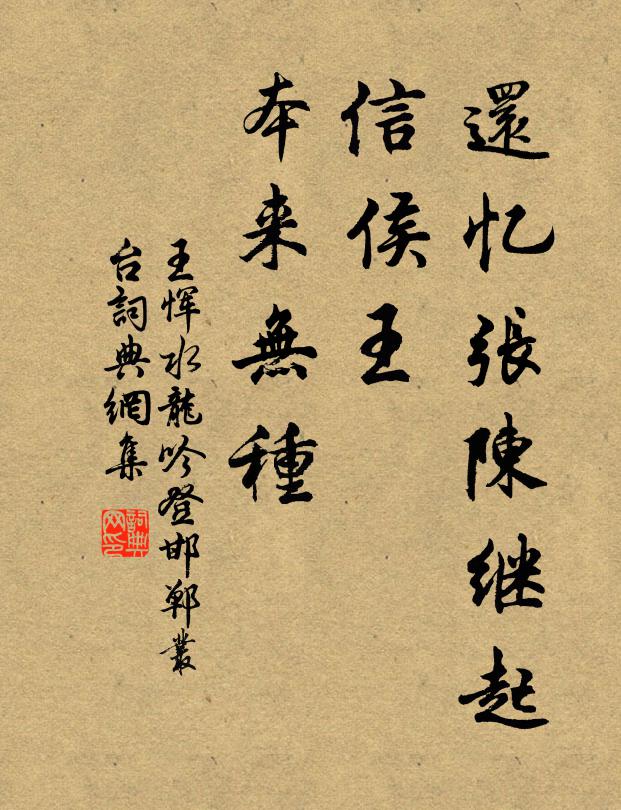 還忆張陳継起
信侯王
本来無種
王恽水龍吟登邯鄲叢
台詞典網集
詞典
网印